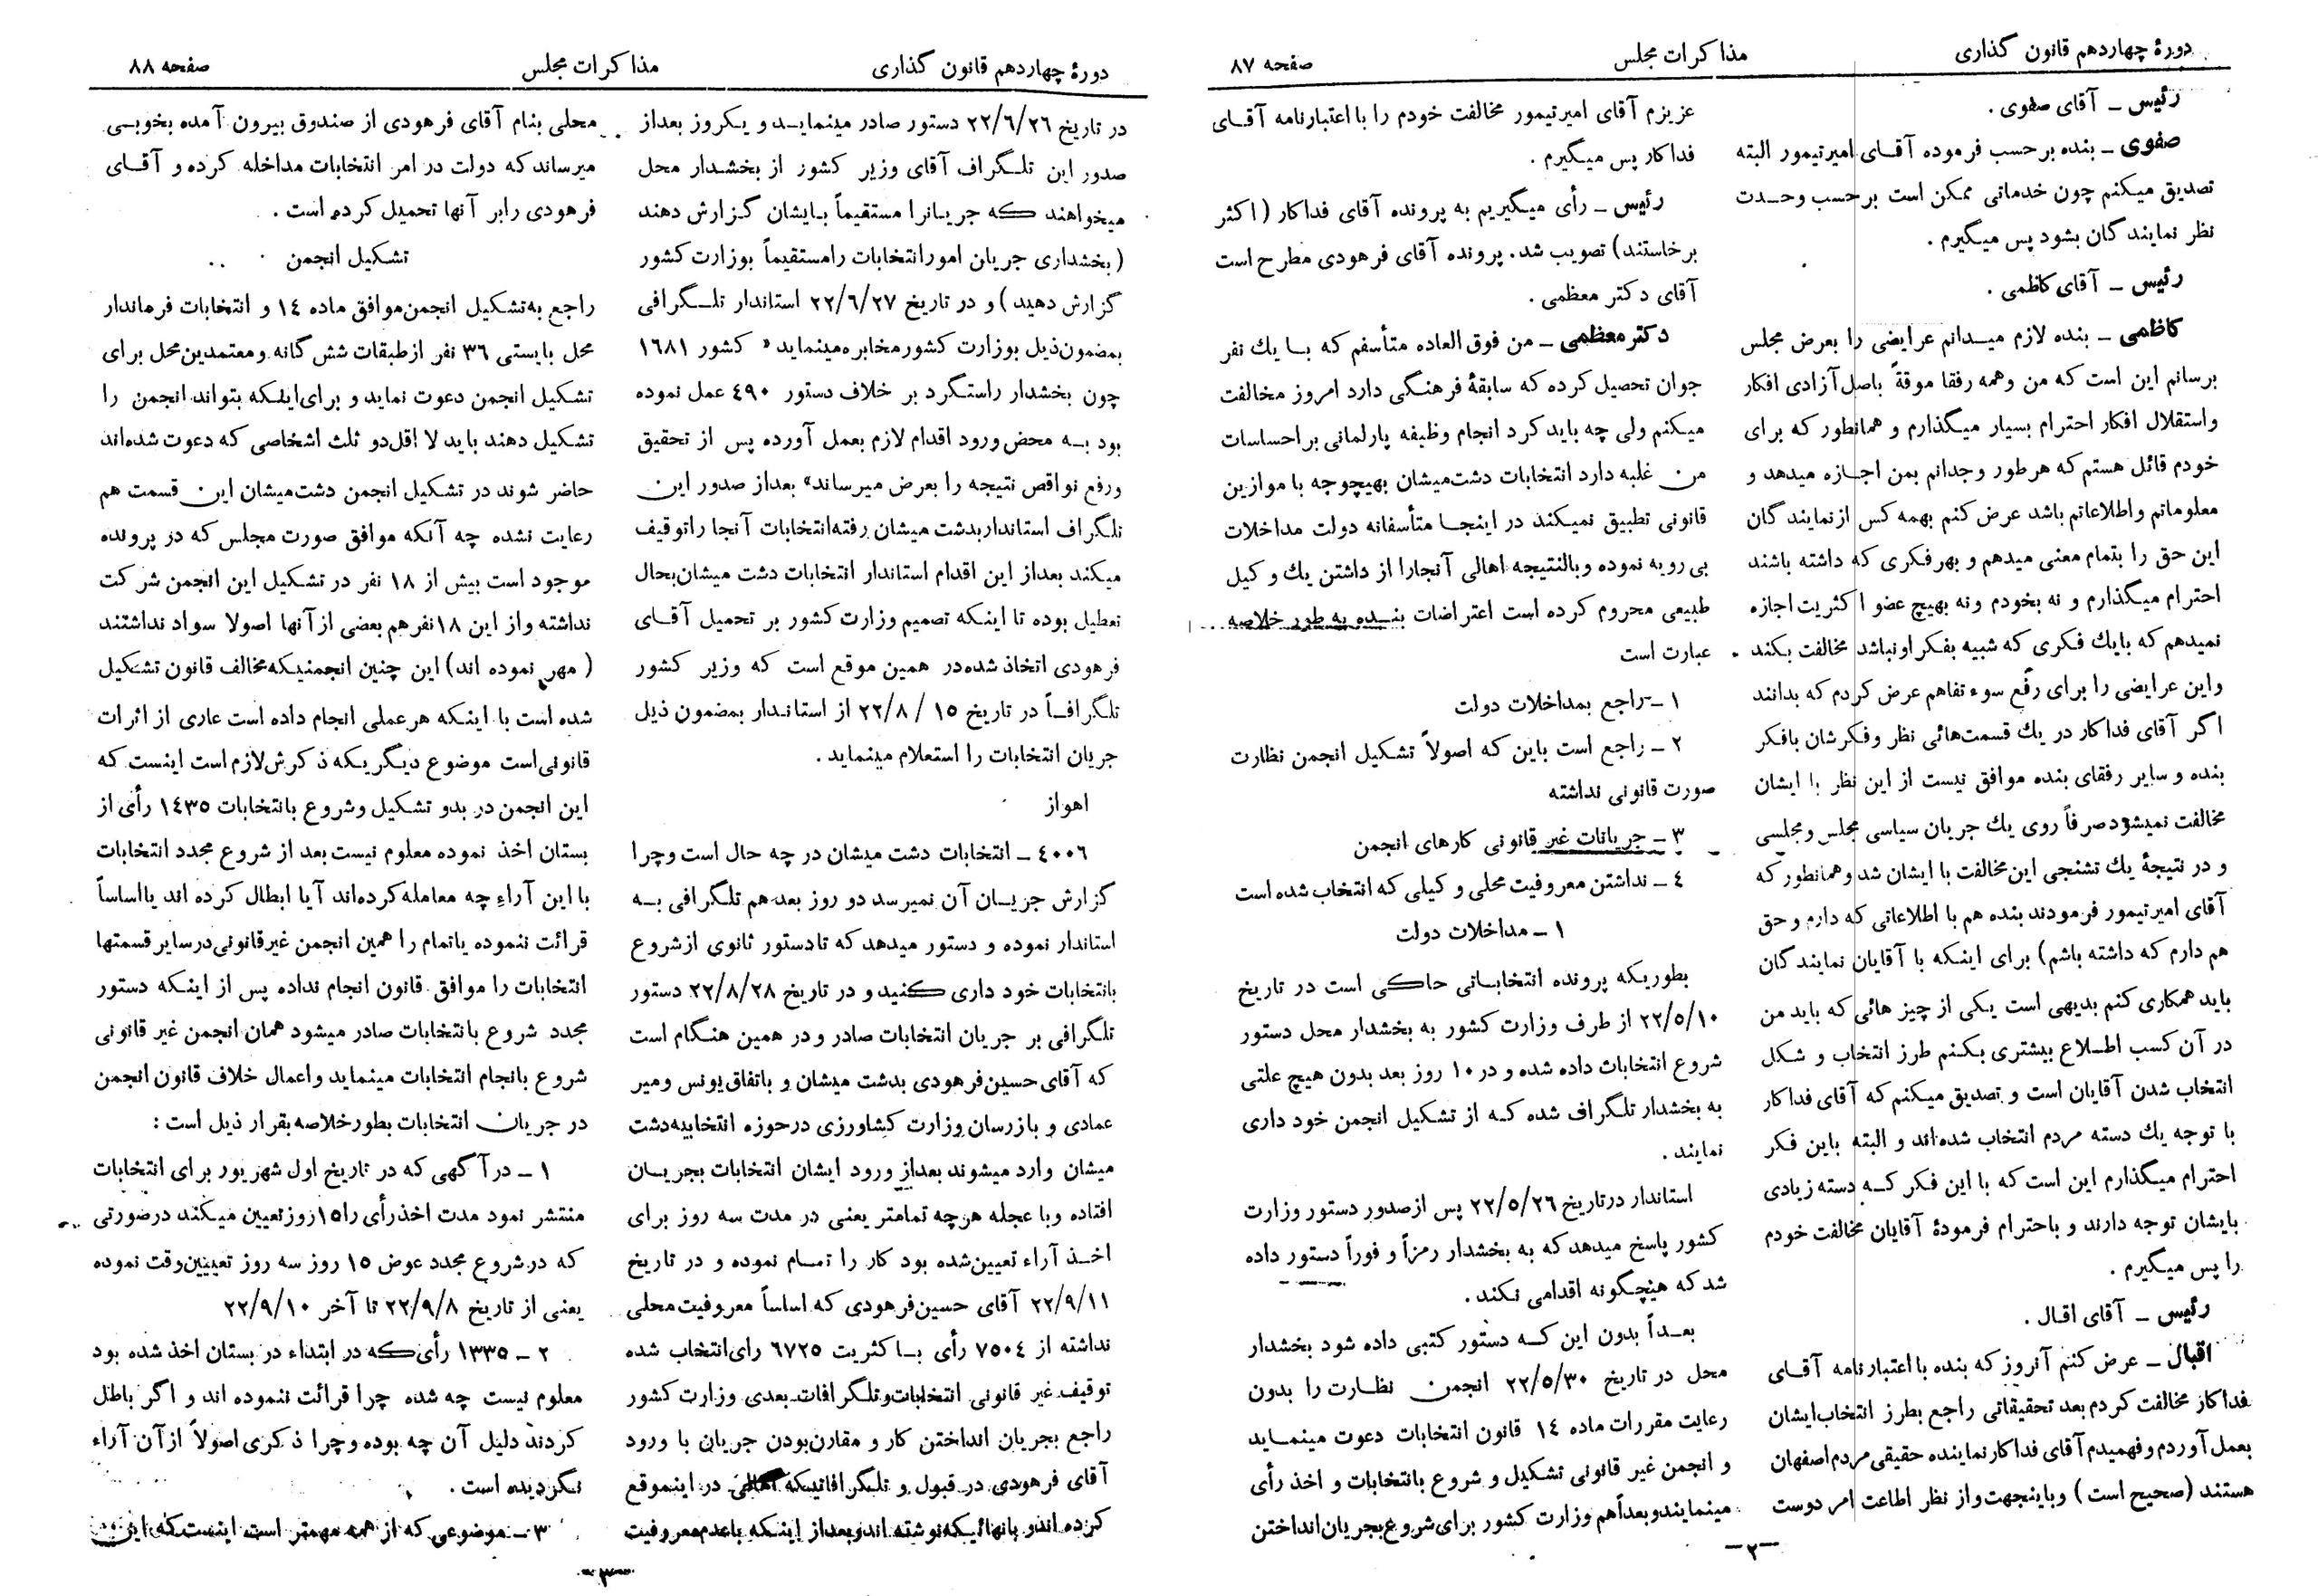 دورهٔ چهاردهم قانون گذاری
مذاکرات مجلس
صفحه ۸۷
رئیس ــ آقای صفوی .
صفوی ــ بنده برحسب فرموده آقـای امیرتیمور البته
تصدیق میکنم چون خدماتی ممکن است برحسب وحـدت
نظر نمایندگان بشود پس میگیرم .
رئیس ــ آقای کاظمی .
کاظمی ــ بنده لازم میـدانم عرایضی را بعرض مجلس
برسانم این است که من وهمه رفقا موقةً باصل آزادی افکار
واستقلال افکار احترام بسیار میگذارم و همانطور که برای
خودم قائل هستم که هرطور وجدانم بمن اجـازه میدهد و
معلوماتم واطلاعاتم باشد عرض کنم بهمه کس ازنمایندگان
این حق را بتمام معنی میدهم و بهرفکری که داشته باشند
احترام میگذارم و نه بخودم ونه بهیچ عضو اکثریت اجازه
نمیدهم که بایك فکری که شبیه بفکر اونباشد مخالفت بکند
واین عرایضی را برای رفع سوء تفاهم عرض کردم که بدانند
اگر آقای فداکار در یك قسمت‌هائی نظر وفکرشان بافکر
بنده و سایر رفقای بنده موافق نیست از این نظر با ایشان
مخالفت نمیشود صرفاً روی یك جریان سیاسی مجلس ومجلسی
و در نتیجهٔ یك تشنجی این مخالفت با ایشان شد وهمانطور که
آقای امیرتیمور فرمودند بنده هم با اطلاعاتی که دارم و حق
هم دارم که داشته باشم) برای اینکه با آقایان نمایندگان
باید همکاری کنم بدیهی است یکی از چیز هائی که باید من
در آن کسب اطـلاع بیشتری بکنم طرز انتخاب و شکل
انتخاب شدن آقایان است و تصدیق میکنم که آقای فداکار
با توجه یك دسته مردم انتخاب شده‌اند و البته باین فکر
احترام میگذارم این است که با این فکر کـه دسته زیادی
بایشان توجه دارند و باحترام فرمودهٔ آقایان مخالفت خودم
را پس میگیرم .
رئیس ــ آقای اقبال .
اقبال ــ عرض کنم آنروز که بنده با اعتبارنامه آقـای
فداکار مخالفت کردم بعد تحقیقاتی راجع بطرز انتخاب‌ایشان
بعمل آوردم وفهمیدم آقای فداکار نماینده حقیقی مردم اصفهان
هستند (صحیح است) وباینجهت واز نظر اطاعت امر دوست
عزیزم آقای امیرتیمور مخالفت خودم را با اعتبارنامه آقـای
فداکار پس میگیرم .
رئیس ــ رأی میگیریم به پرونده آقای فداکار (اکثر
برخاستند) تصویب شد. پرونده آقای فرهودی مطرح است
آقای دکتر معظمی .
دکتر معظمی ــ من فوق العاده متأسفم که بـا یك نفر
جوان تحصیل کرده که سابقهٔ فرهنگی دارد امروز مخالفت
میکنم ولی چه باید کرد انجام وظیفه پارلمانی براحساسات
من غلبه دارد انتخابات دشت‌میشان بهیچوجه با موازین
قانونی تطبیق نمیکند در اینجـا متأسفانه دولت مداخلات
بی رویه نموده وبالنتیجه اهالی آنجارا از داشتن یك وکیل
طبیعی محروم کرده است اعتراضات بنـده به طور خلاصه
عبارت است
۱ ــ راجع بمداخلات دولت
۲ ــ راجع است باین که اصولاً تشکیل انجمن نظارت
صورت قانونی نداشته
۳ ــ جریانات غیر قانونی کارهای انجمن
٤ ــ نداشتن معروفیت محلی وکیلی که انتخاب شده است
۱ ــ مداخلات دولت
بطوریکه پرونده انتخابـاتی حاکی است در تاریخ
۲۲/۵/۱۰ از طرف وزارت کشور به بخشدار محل دستور
شروع انتخابات داده شده و در ۱۰ روز بعد بدون هیچ علتی
به بخشدار تلگراف شده کـه از تشکیل انجمن خود داری
نمایند .
استاندار در تاریخ ۲۲/۵/۲٦ پس از صدور دستور وزارت
کشور پاسخ میدهد که به بخشدار رمزاً و فوراً دستور داده
شد که هیچگونه اقدامی نکند .
بعـداً بدون این کـه دستور کتبی داده شود بخشدار
محل در تاریخ ۲۲/۵/۳۰ انجمن نظـارت را بدون
رعایت مقررات ماده ۱٤ قانون انتخابات دعوت مینمـاید
و انجمن غیر قانونی تشکیل و شروع بانتخابات و اخذ رأی
مینمایند وبعداً هم وزارت کشور برای شروع بجریان انداختن
ــ۲ــ
دورهٔ چهاردهم قانون گذاری
مذاکرات مجلس
صفحه ۸۸
در تاریخ ۲۲/٦/۲٦ دستور صادر مینمایـد و یکروز بعداز
صدور این تلـگراف آقای وزیر کشور از بخشـدار محل
میخواهند کـه جریـانرا مستقیماً بـایشان گـزارش دهند
(بخشداری جریان امور انتخابات رامستقیماً بوزارت کشور
گزارش دهید) و در تاریخ ۲۲/٦/۲۷ استاندار تلـگرافی
بمضمون ذیل بوزارت کشور مخابره مینماید « کشور ۱٦۸۱
چون بخشدار راستگرد بر خلاف دستور ٤۹۰ عمل نموده
بود بـه محض ورود اقدام لازم بعمل آورده پس از تحقیق
ورفع نواقص نتیجه را بعرض میرساند» بعداز صدور این
تلگراف استاندار بدشت میشان رفته انتخابات آنجا را توقیف
میکند بعداز این اقدام استاندار انتخابات دشت میشان بحال
تعطیل بوده تا اینکه تصمیم وزارت کشور بر تحمیل آقـای
فرهودی اتخاذ شده در همین موقع است که وزیر کشور
تلگرافـاً در تاریخ ۱۵ /۲۲/۸ از استاندار بمضمون ذیل
جریان انتخابات را استعلام مینماید .
اهواز
٤۰۰٦ ــ انتخابات دشت میشان در چه حال است وچرا
گزارش جریـان آن نمیرسد دو روز بعد هم تلگرافی بـه
استاندار نموده و دستور میدهد که تا دستور ثانوی از شروع
بانتخابات خود داری کنید و در تاریخ ۲۲/۸/۲۸ دستور
تلگرافی بر جریان انتخابات صادر و در همین هنگام است
که آقای حسین فرهودی بدشت میشان و باتفاق یونس و میر
عمادی و بازرسان وزارت کشاورزی در حوزه انتخابیه دشت
میشان وارد میشوند بعداز ورود ایشان انتخابات بجریـان
افتاده وبا عجله هرچه تمامتر یعنی در مدت سه روز برای
اخـذ آراء تعیین شده بود کار را تمـام نموده و در تاریخ
۲۲/۹/۱۱ آقای حسین فرهودی که اساساً معروفیت محلی
نداشته از ۷۵۰٤ رأی بـا کثریت ٦۷۲۵ رای انتخاب شده
توقیف غیر قانونی انتخابات وتلگرافات بعدی وزارت کشور
راجع بجریان انداختن کار و مقارن بودن جریان با ورود
آقای فرهودی در قبول و تلگرافاتیکه اهالی در اینموقع
کرده اند و بانهائیکه نوشته اند و بعد از اینکه با عدم معروفیت
محلی بنام آقای فرهودی از صندوق بیرون آمده بخوبـی
میرساند که دولت در امر انتخابات مداخله کرده و آقـای
فرهودی رابر آنها تحمیل کرده است .
تشکیل انجمن
راجع به تشکیل انجمن موافق ماده ۱٤ و انتخابات فرماندار
محل بایستی ۳٦ نفر از طبقات شش گانه و معتمدین محل برای
تشکیل انجمن دعوت نماید و برای اینکه بتواند انجمن را
تشکیل دهند باید لا اقل دو ثلث اشخاصی که دعوت شده‌اند
حاضر شوند در تشکیل انجمن دشت میشان این قسمت هم
رعایت نشده چه آنکه موافق صورت مجلس که در پرونده
موجود است بیش از ۱۸ نفر در تشکیل این انجمن شرکت
نداشته واز این ۱۸ نفر هم بعضی از آنها اصولا سواد نداشتند
(مهر نموده اند) این چنین انجمنیکه مخالف قانون تشکیل
شده است با اینکه هر عملی انجام داده است عاری از اثرات
قانونی است موضوع دیگریکه ذکرش لازم است اینست که
این انجمن در بدو تشکیل وشروع بانتخابات ۱٤۳۵ رأی از
بستان اخذ نموده معلوم نیست بعد از شروع مجدد انتخابات
با این آراء چه معامله کرده‌اند آیا ابطال کرده اند یا اساساً
قرائت ننموده یا تمام را همین انجمن غیر قانونی در سایر قسمتها
انتخابات را موافق قانون انجام نداده پس از اینکه دستور
مجدد شروع بانتخابات صادر میشود همان انجمن غیر قانونی
شروع بانجام انتخابات مینماید واعمال خلاف قانون انجمن
در جریان انتخابات بطور خلاصه بقرار ذیل است :
۱ ــ در آگهی که در تاریخ اول شهریور برای انتخابات
منتشر نمود مدت اخذ رأی را ۱۵ روز تعیین میکند در صورتی
که در شروع مجدد عوض ۱۵ روز سه روز تعیین وقت نموده
یعنی از تاریخ ۲۲/۹/۸ تا آخر ۲۲/۹/۱۰
۲ ــ ۱۳۳۵ رأی که در ابتداء در بستان اخذ شده بود
معلوم نیست چه شده چرا قرائت ننموده اند و اگر باطل
کردند دلیل آن چه بوده وچرا ذکری اصولاً از آن آراء
نگردیده است .
۳ ــ موضوعی که از همه مهمتر است اینست که این
ــ۳ــ